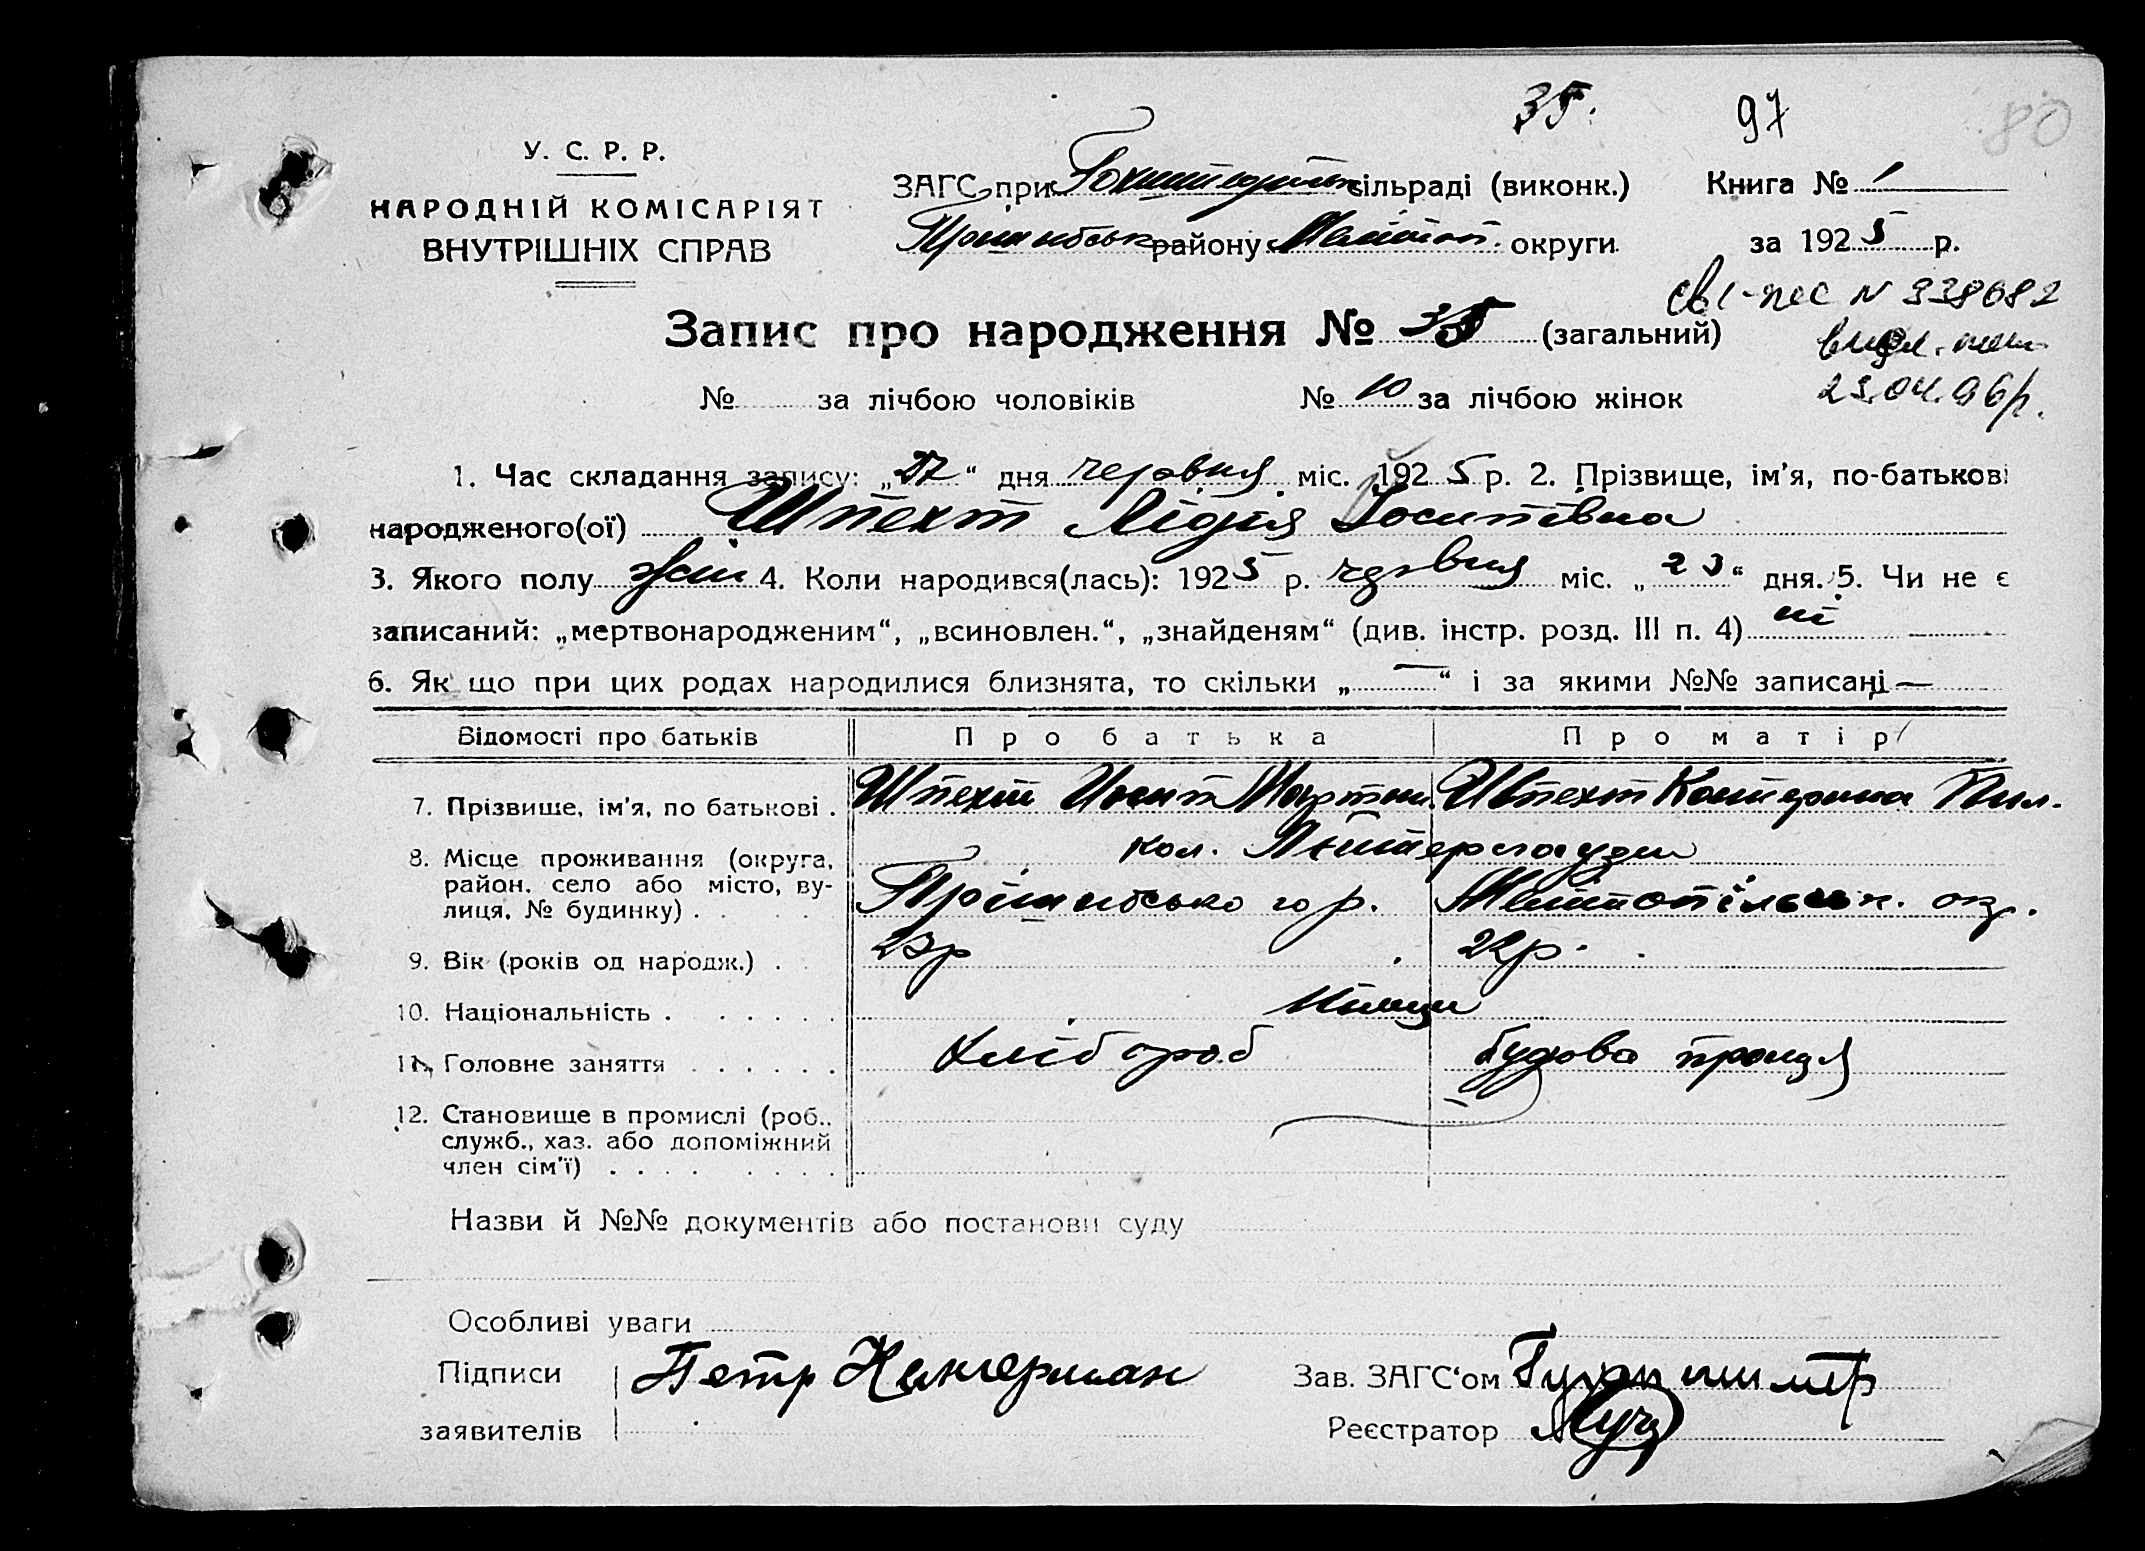 35. 97 80
У. С. Р. Р.
НАРОДНІЙ КОМІСАРІЯТ
ВНУТРІШНІХ СПРАВ
ЗАГС при сільраді (виконк.) Книга № 1
Пришибськ району Мелітоп. округи за 1925 р.
Запис про народження № 35 (загальний)
23.04.96р.
№ за лічбою чоловіків № 10 за лічбою жінок
1. Час складання запису: „27“ дня червня міс. 1925 р. 2. Прізвище, ім’я, по-батькові
народженого(ої) Шпехт Лідія Іосипівна
3. Якого полу жін 4. Коли народився(лась): 1925 р. червня міс. „23“ дня. 5. Чи не є
записаний: „мертвонародженим“, „всиновлен.“, „знайденям“ (див. інстр. розд. III п. 4) ні —
6. Як що при цих родах народилися близнята, то скільки „—“ і за якими №№ записані —
Відомості про батьків Про батька Про матір
7. Прізвище, ім’я, по батькові . Шпехт Иосип Мартин. Шпехт Катерина Пил.
8. Місце проживання (округа, кол.
район, село або місто, ву-
лиця, № будинку) . Пришибського р. Мелітопільськ. окр.
9. Вік (років од народж.) . 23р 22р.
10. Національність . Німци
11. Головне заняття . Хлібороб
12. Становище в промислі (роб.,
служб., хаз. або допоміжний
член сім’ї) .
Назви й №№ документів або постанови суду
Особливі уваги
Підписи Петр Зав. ЗАГС‘ом
заявителів Реєстратор